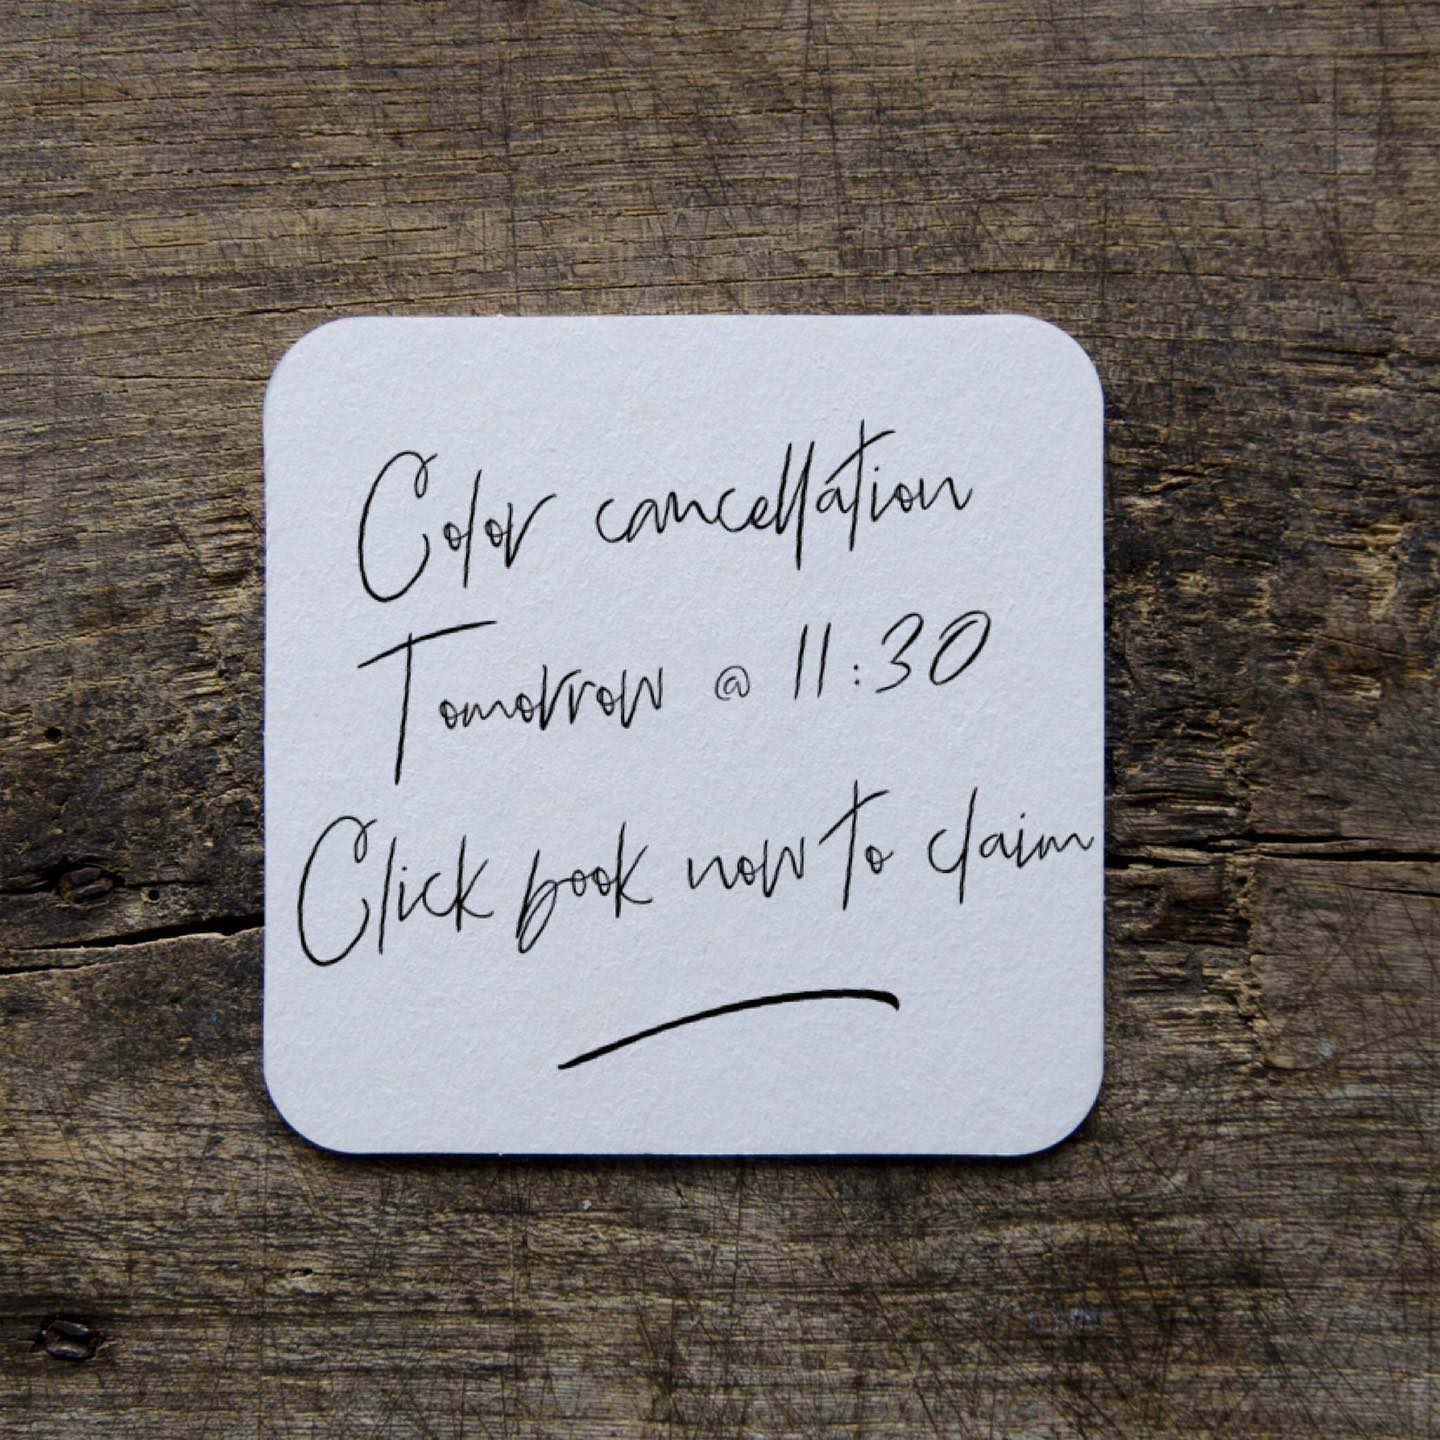 Color cancellation
Tomorrow @ 11:30
Click book now to claim